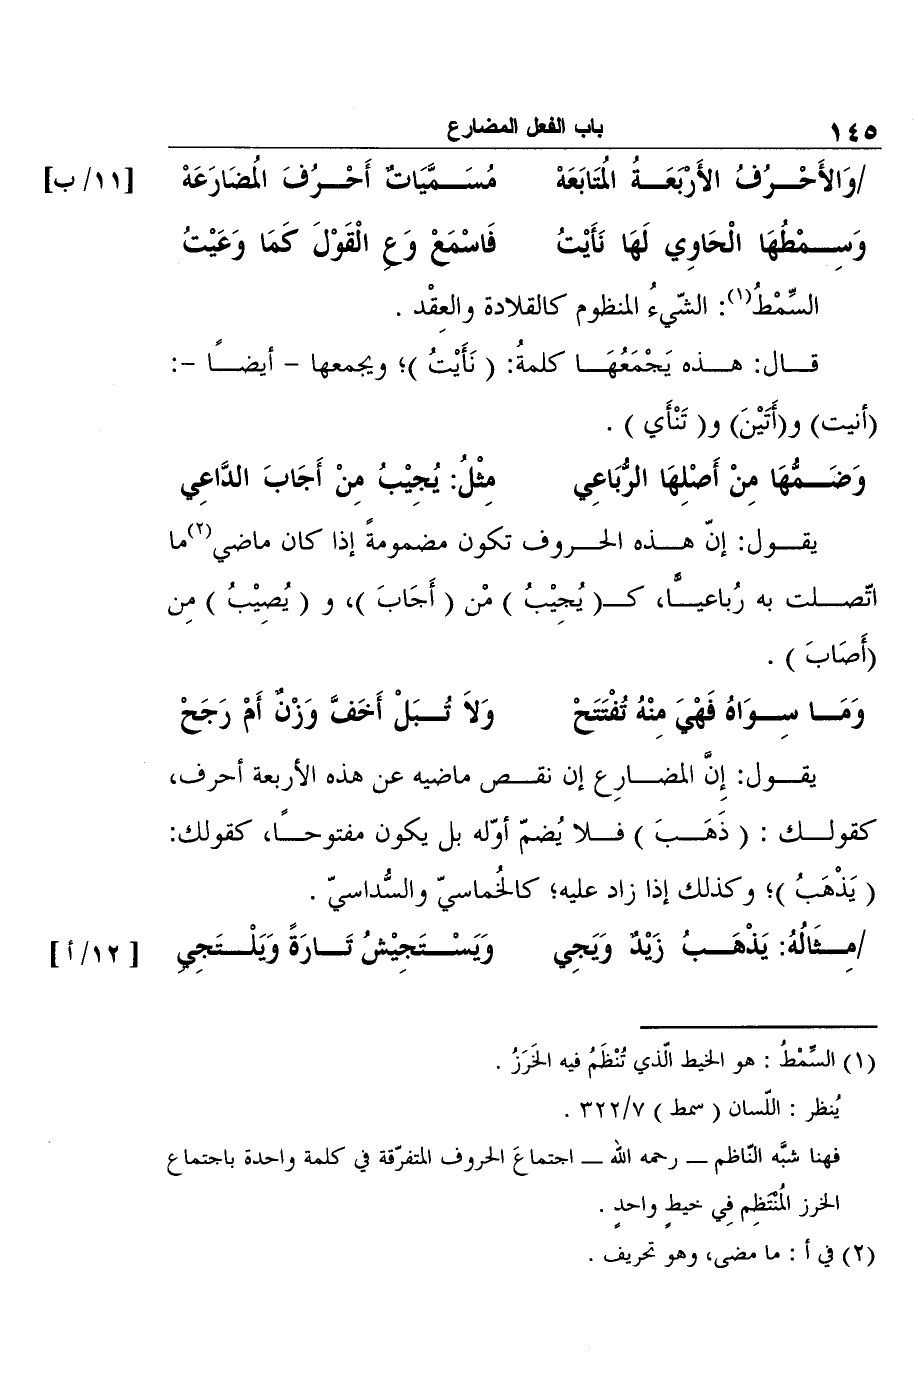 ١٤٥ باب الفعل المضارع
/وَالأَحْرُفُ الأَرْبَعَةُ المُتَابَعَهْ مُسَمَّيَاتٌ أَحْرُفَ المُضَارَعَهْ [١١/ب]
وَسِمْطُهَا الْحَاوِي لَهَا نَأَيْتُ فَاسْمَعْ وَعِ الْقَوْلَ كَمَا وَعَيْتُ
السِّمْطُ(١): الشّيءُ المنظوم كالقلادة والعِقْد .
قال: هذه يَجْمَعُهَا كلمةُ: ( نَأَيْتُ )؛ ويجمعها – أيضاً –:
(أنيت) و(أَتَيْنَ) و( تَنْأَي ) .
وَضَمُّهَا مِنْ أَصْلِهَا الرُّبَاعِي مِثْلُ: يُجِيْبُ مِنْ أَجَابَ الدَّاعِي
يقول: إنّ هذه الحروف تكون مضمومةً إذا كان ماضي(٢)ما
اتّصلت به رُباعيًّا، كـ( يُجِيْبُ ) مْن ( أَجَابَ )، و ( يُصِيْبُ ) مِن
(أَصَابَ ) .
وَمَا سِوَاهُ فَهْيَ مِنْهُ تُفْتَتَحْ وَلاَ تُبَلْ أَخَفَّ وَزْنٌ أَمْ رَجَحْ
يقول: إنَّ المضارِع إن نقص ماضيه عن هذه الأربعة أحرف،
كقولك : ( ذَهَبَ ) فلا يُضمّ أوّله بل يكون مفتوحاً، كقولك:
( يَذْهَبُ )؛ وكذلك إذا زاد عليه؛ كالخُماسيّ والسُّداسيّ .
/مِثَالُهُ: يَذْهَبُ زَيْدٌ وَيَجِي وَيَسْتَجِيْشُ تَارَةً وَيَلْتَجِي [ ١٢/أ ]
(١) السِّمْطُ : هو الخيط الّذي تُنْظَمُ فيه الخَرَزُ .
يُنظر : اللّسان ( سمط ) ٣٢٢/٧ .
فهنا شبَّه النّاظم ـ رحمه الله ـ اجتماعَ الحروف المتفرّقة في كلمة واحدة باجتماع
الخرز المُنْتَظِم فِي خيطٍ واحدٍ .
(٢) في أ : ما مضى، وهو تحريف .